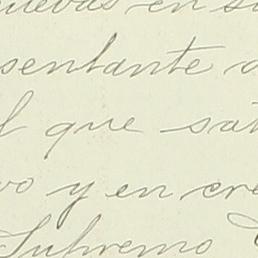 nuevas en su
sentante
que sat
vo y en cre
Supremo